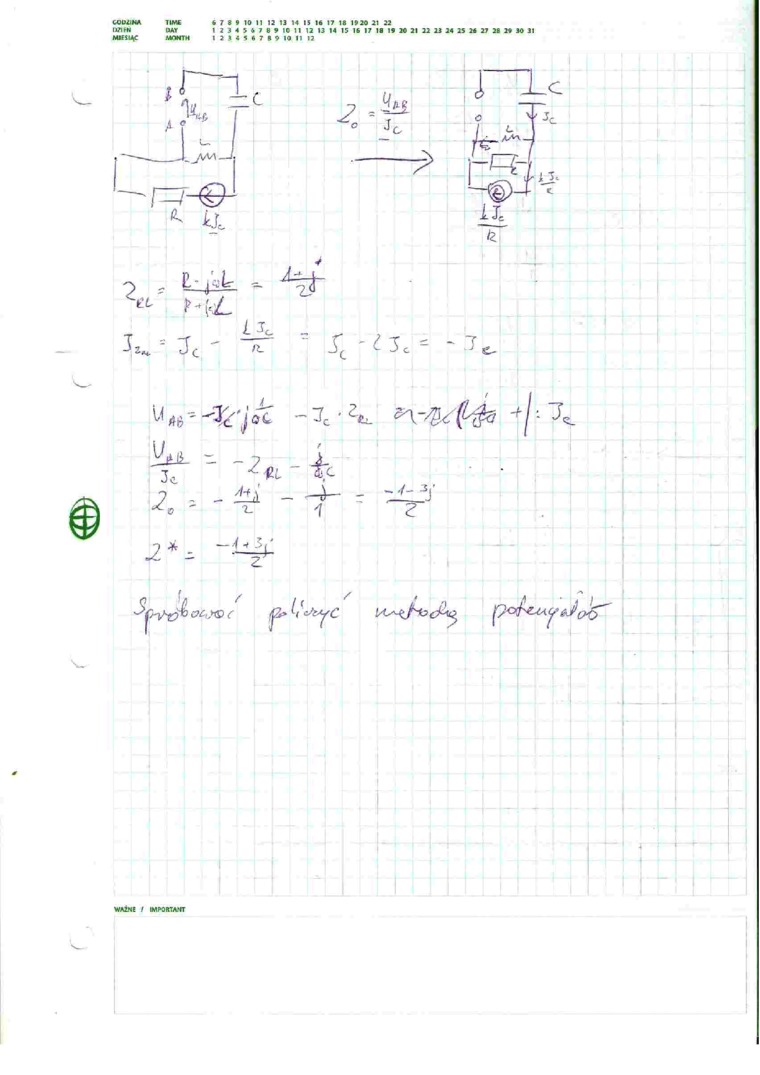 GODZINA TIME 6 7 8 9 10 11 12 13 14 15 16 17 18 19 20 21 22
DZIEŃ DAY 1 2 3 4 5 6 7 8 9 10 11 12 13 14 15 16 17 18 19 20 21 22 23 24 25 26 27 28 29 30 31
MIESIĄC MONTH 1 2 3 4 5 6 7 8 9 10 11 12
B U_AB A C L R kI_c
Z_o = U_AB / I_c
C I_c L R kI_c/R kI_c/R
Z_RL = R·jωL / R+jωL = 1+j / 2
I_c - kI_c/R = I_c - 2I_c = -I_c
U_AB = - I_c · Z_RL : I_c
U_AB / I_c = -Z_RL - j/ωC
Z_o = - 1+j/2 - j/1 = -1-3j / 2
Z* = -1+3j / 2
Spróbować policzyć metodą potencjałów
WAŻNE / IMPORTANT